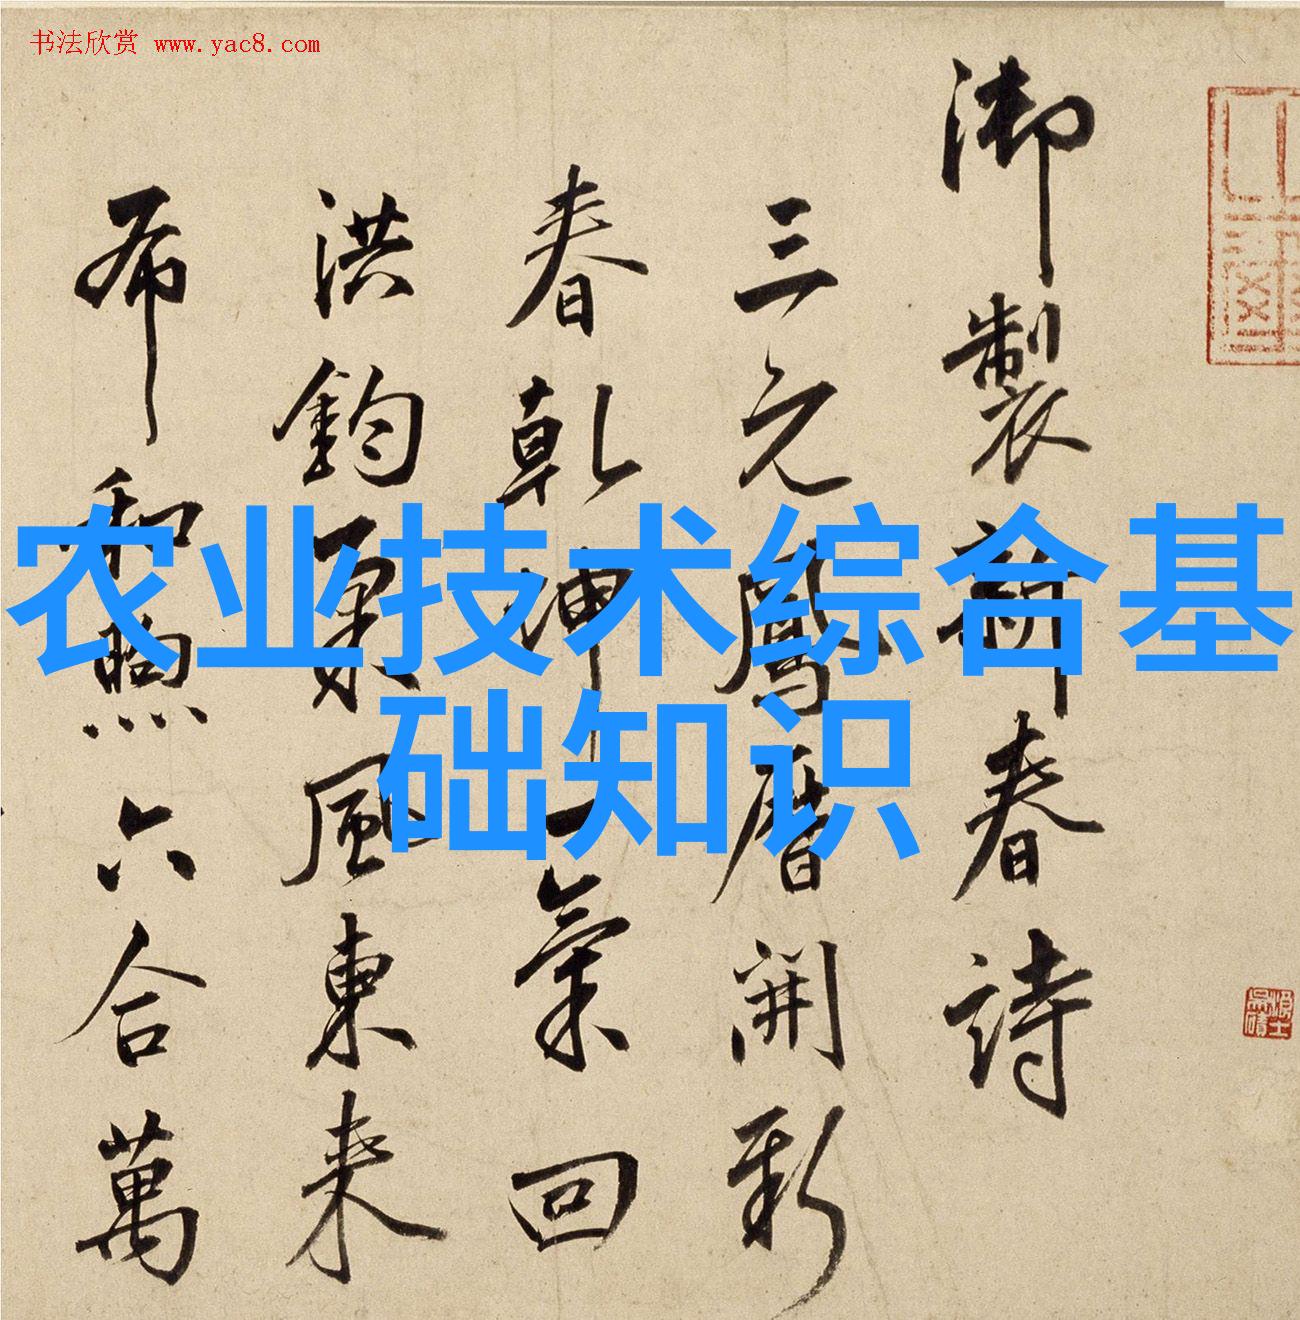 书法欣赏 www.yac8.com
御製新春詩
三元鳳曆開新
春乾坤一氣回
洪鈞氣風東来
布和煦六合萬
农业技术综合基
础知识